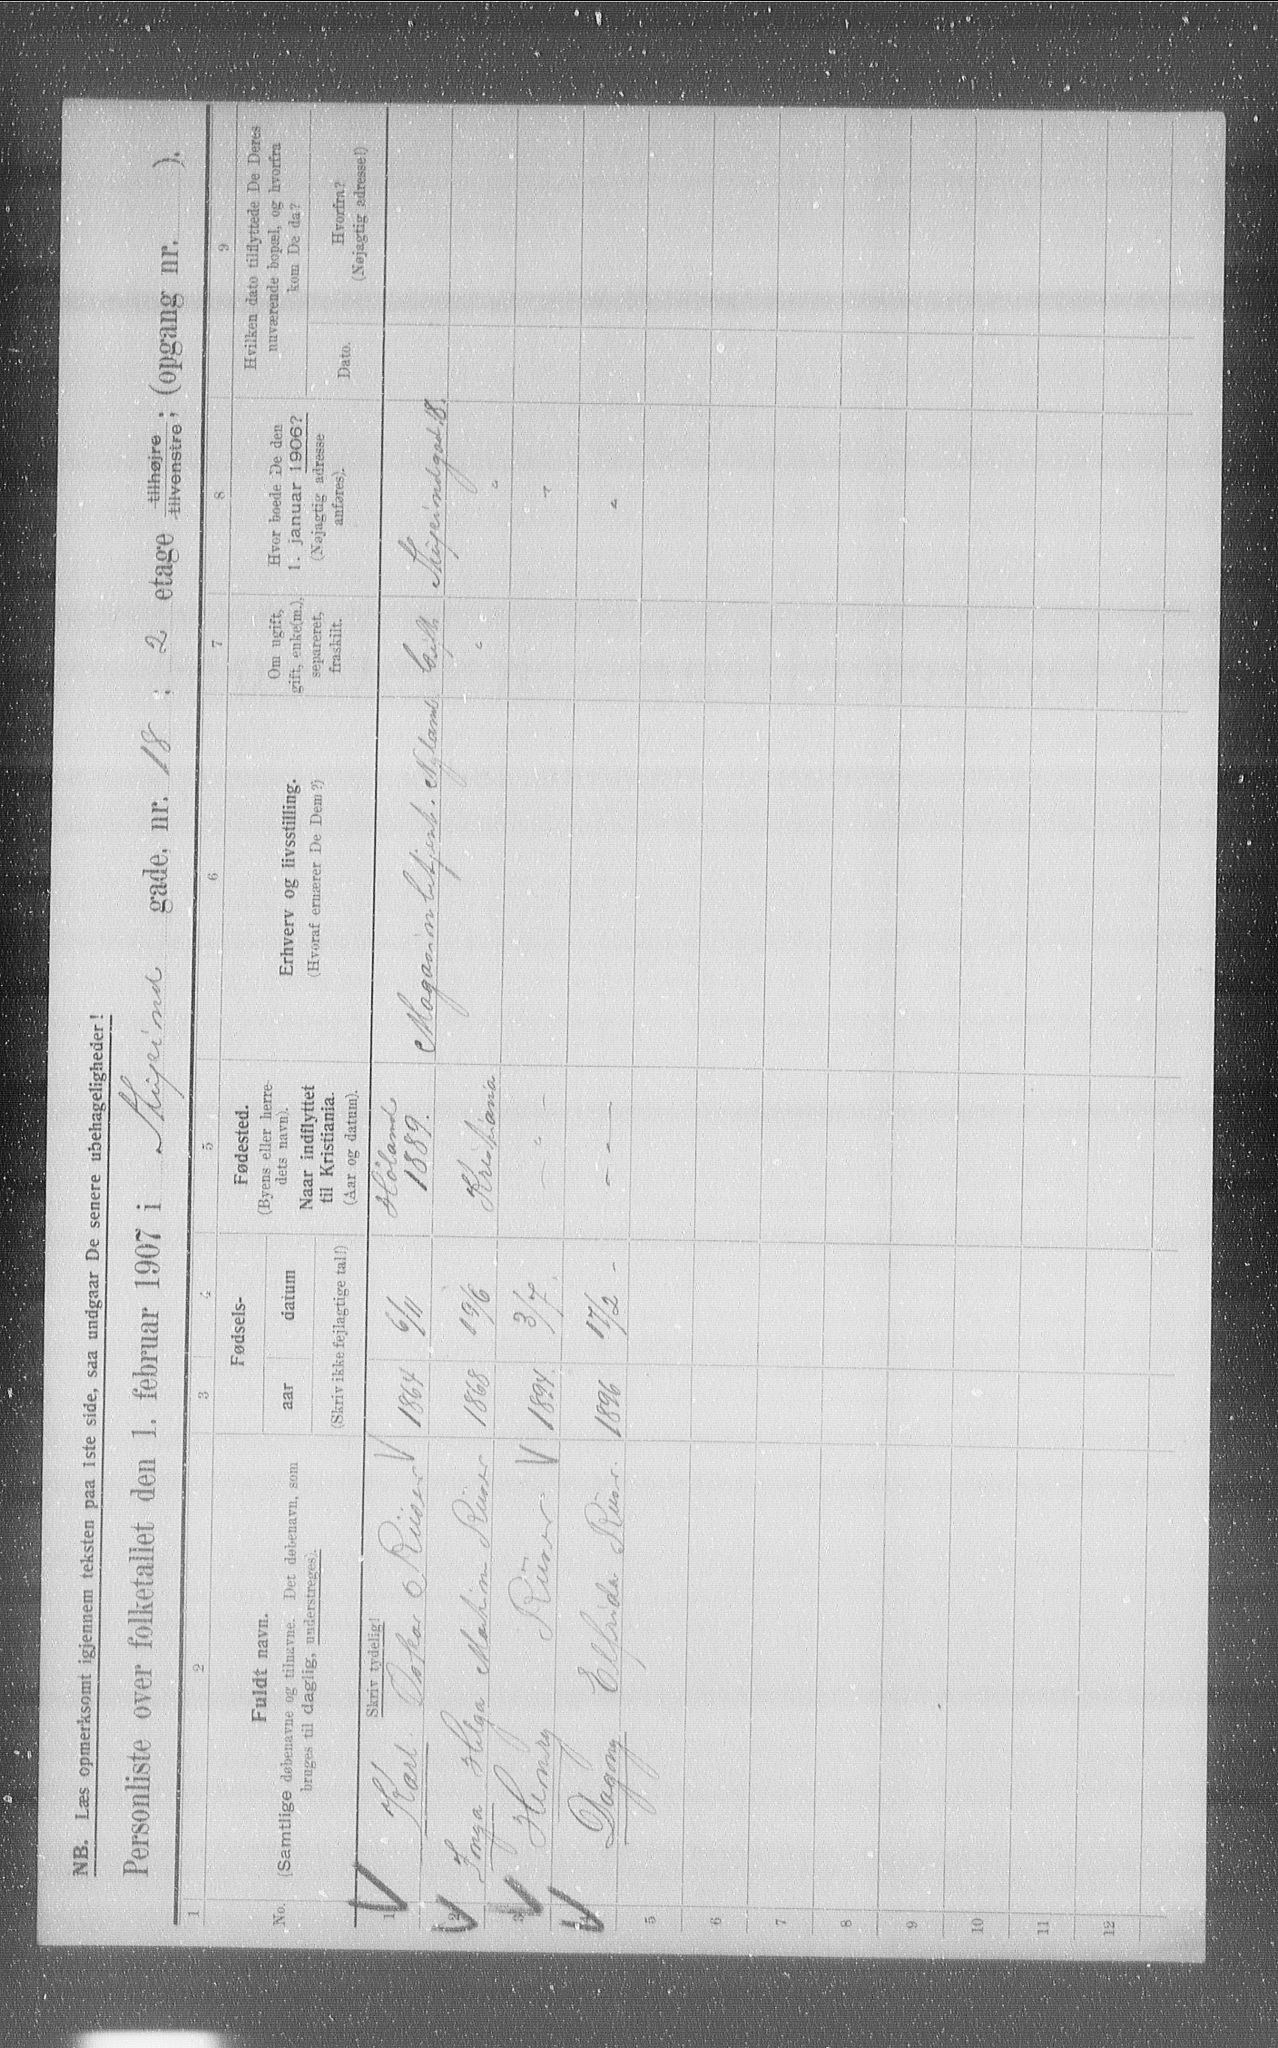 NB. Læs opmerksomt igjennem teksten paa 1ste side, saa undgaar De senere ubehageligheder!
Personliste over folketallet den 1. februar 1907 i Skipeind gade, nr. 18 ; 2 etage tilhøjre / tilvenstre ; (opgang nr. ).
1 2 3 4 5 6 7 8 9
No.
Fuldt navn.
(Samtlige døbenavne og tilnavne. Det døbenavn, som
bruges til daglig, understreges).
Skriv tydelig!
Fødsels-
aar datum
(Skriv ikke fejlagtige tal!)
Fødested.
(Byens eller herre-
dets navn).
Naar indflyttet
til Kristiania.
(Aar og datum).
Erhverv og livsstilling.
(Hvoraf ernærer De Dem?)
Om ugift,
gift, enke(m.),
separeret,
fraskilt.
Hvor boede De den
1. januar 1906?
(Nøjagtig adresse
anføres).
Hvilken dato tilflyttede De Deres
nuværende bopæl, og hvorfra
kom De da?
Dato.
Hvorfra?
(Nøjagtig adresse!)
1 Karl Oskar Riiser V 1864 6/11 Höland 1889. Magasinbetjent. Nyland Gift 18.
2 Inga Helga Riiser 1868 19/6 Kristiania " "
3 Henry Riiser V 1894. 3/7. - " - "
4 Dagny Elfrida Riiser. 1896 17/2 - - - — "
5
6
7
8
9
10
11
12